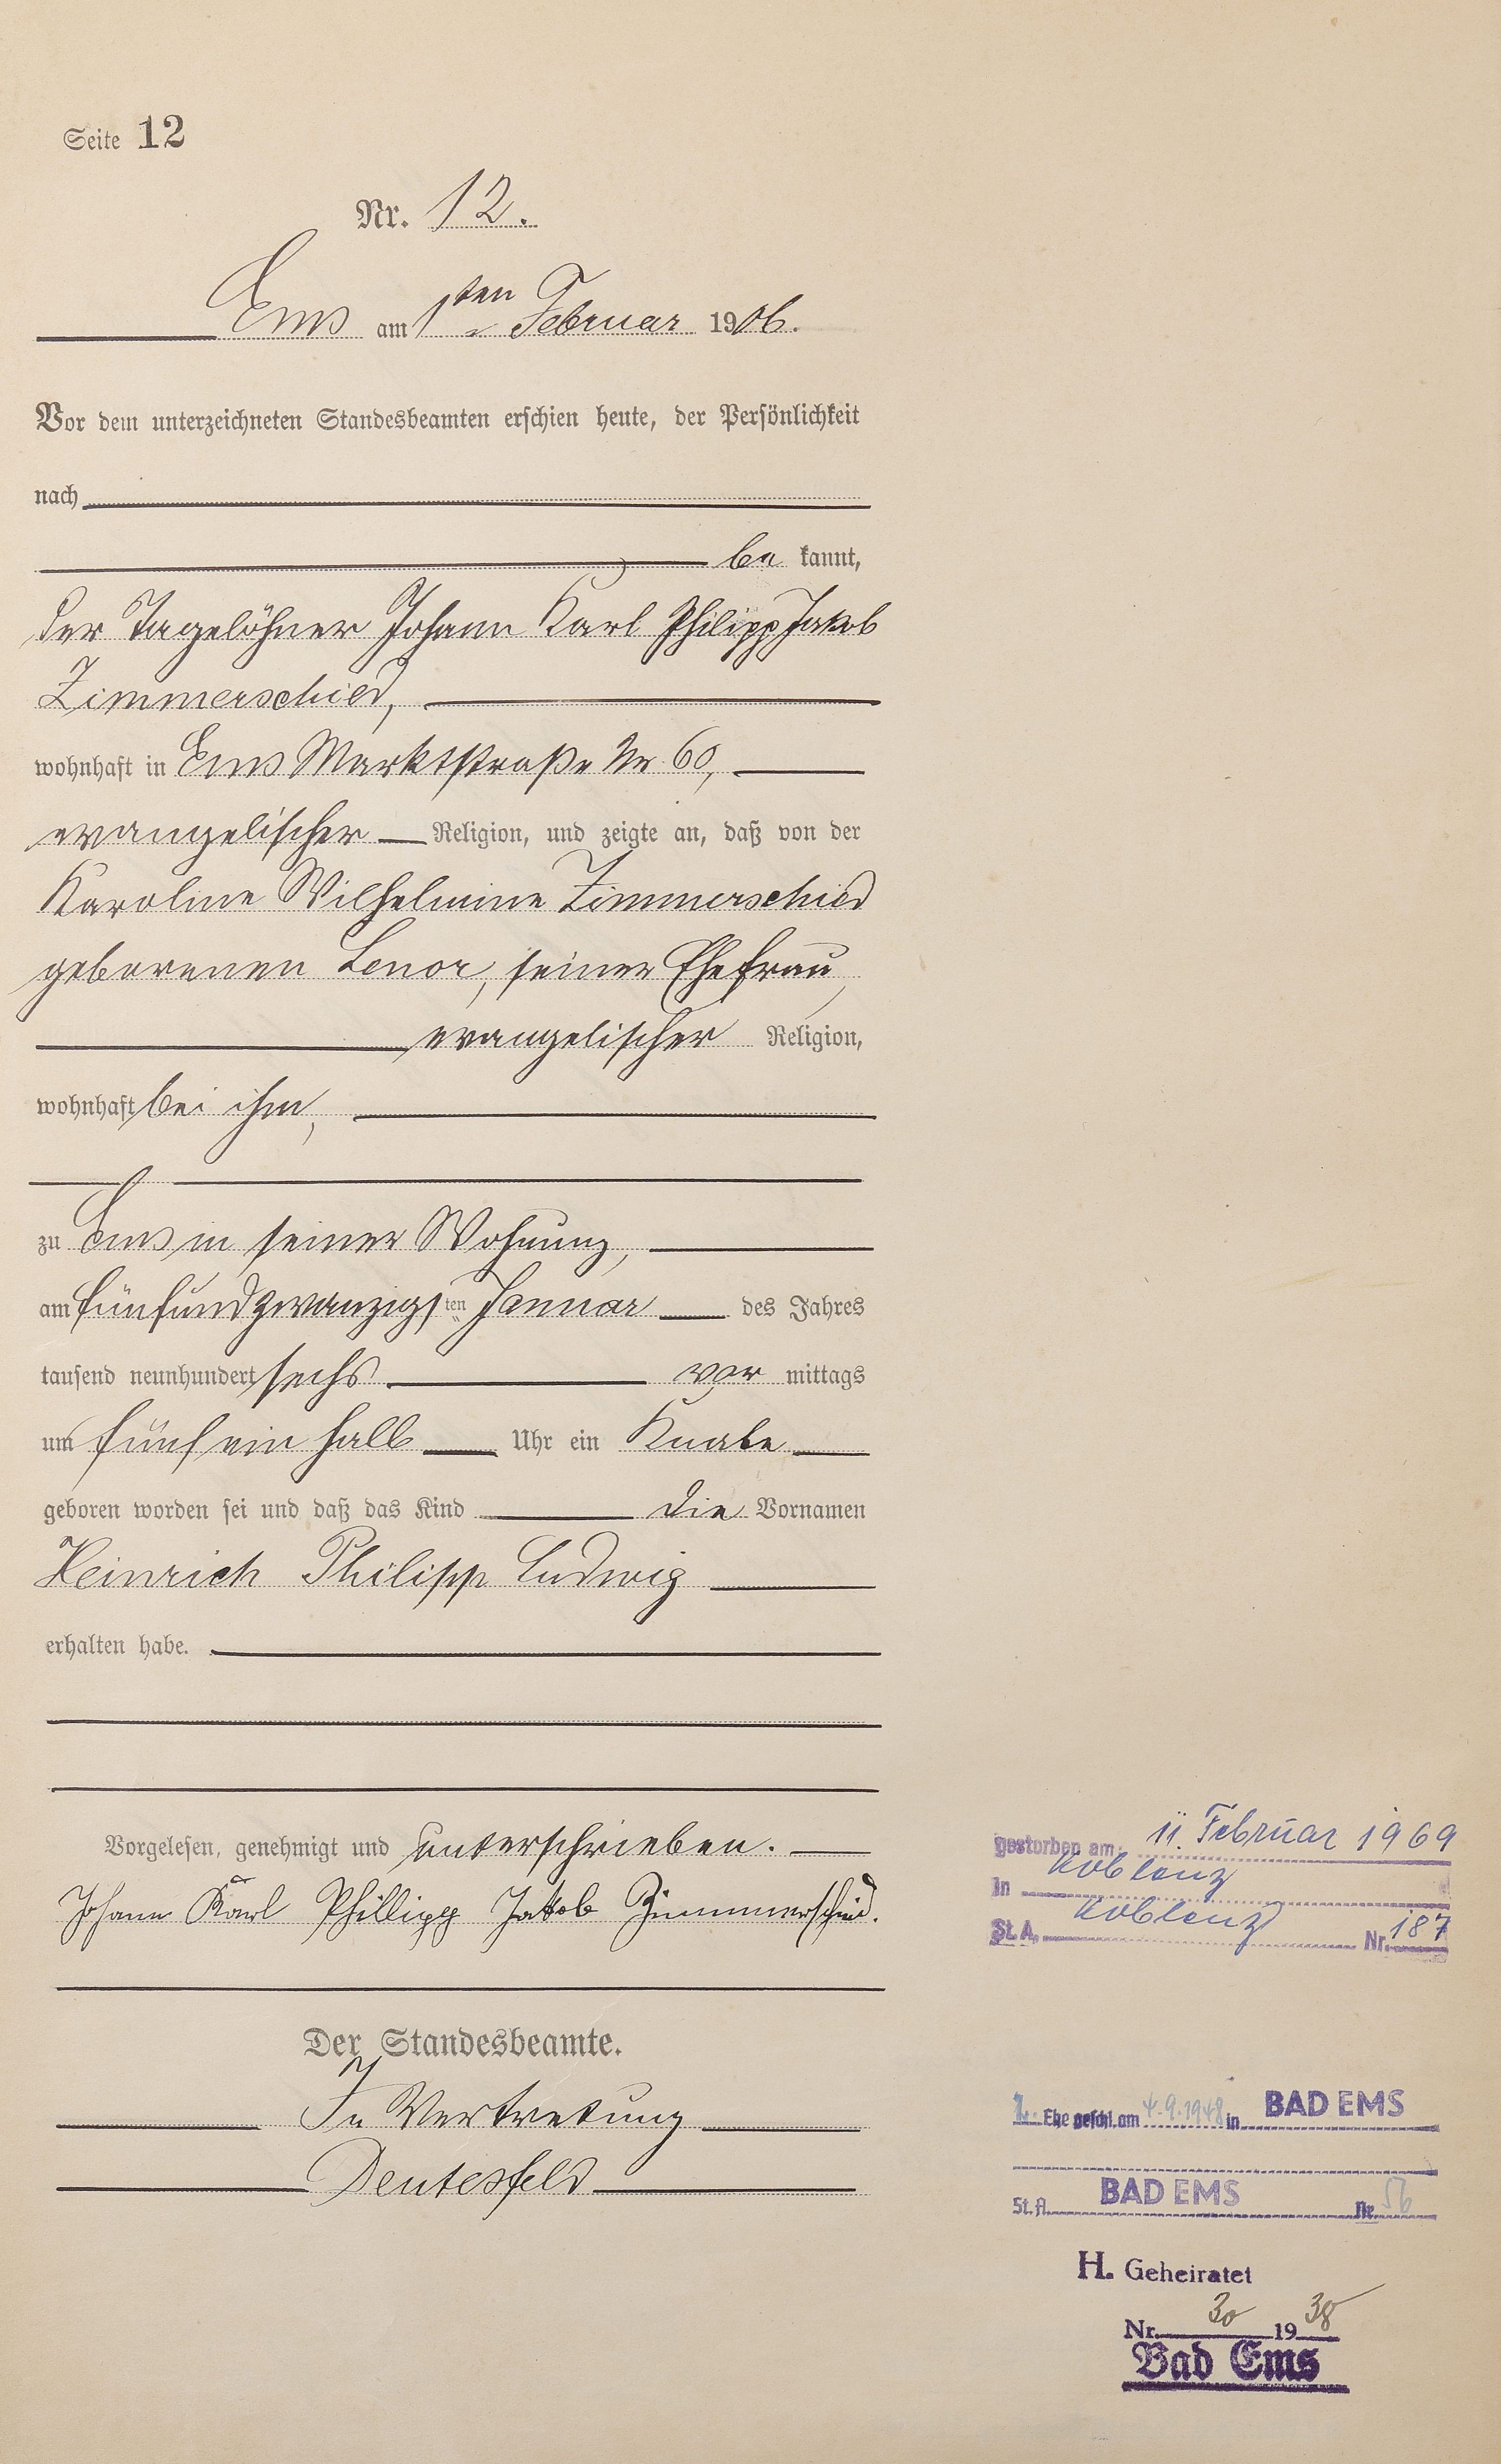 Seite 12
Nr. 12.
Ems am 1ten Februar 1906.
Vor dem unterzeichneten Standesbeamten erschien heute, der Persönlichkeit
nach
be kannt,
der Tagelöhner Johann Karl Philipp Jakob
Zimmerschied,
wohnhaft in Ems Marktstraße Nr. 60,
evangelischer Religion, und zeigte an, daß von der
Karoline Wilhelmine Zimmerschied
geborenen Lenor, seiner Ehefrau,
evangelischer Religion,
wohnhaft bei ihm,
zu Ems in seiner Wohnung,
am fünfundzwanzigsten Januar des Jahres
tausend neunhundert sechs vor mittags
um fünf ein halb Uhr ein Knabe
geboren worden sei und daß das Kind die Vornamen
Heinrich Philipp Ludwig
erhalten habe.
Vorgelesen, genehmigt und unterschrieben.
Johann Karl Phillipp Jakob Zimmmerschied.
Der Standesbeamte.
In Vertretung
Deutesfeld
gestorben am 11. Februar 1969
in Koblenz
St. A. Koblenz Nr. 187
2. Ehe geschl. am 4.9.1948 in BAD EMS
St. A. BAD EMS Nr. 56
H. Geheiratet
Nr. 30 1938
Bad Ems